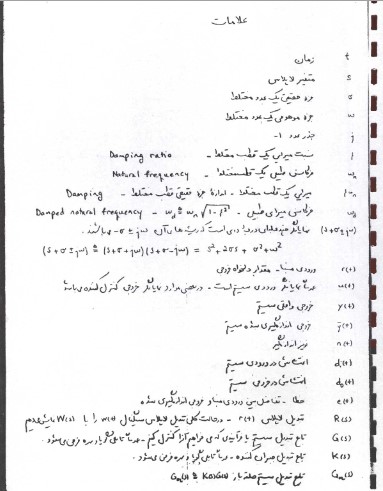 علامات
t زمان
s متغیر لاپلاس
σ جزء حقیقی یک عدد مختلط
ω جزء موهومی یک عدد مختلط
j جذر عدد ۱-
ζ نسبت میرایی یک قطب مختلط - Damping ratio
ωn فرکانس طبیعی یک قطب مختلط - Natural frequency
ζωn میرایی یک قطب مختلط - اندازهٔ جزء حقیقی قطب مختلط - Damping
ωd فرکانس میرای طبیعی - ωd ≜ ωn √1-ζ² - Damped natural frequency
(s+σ±jω) نمایشگر چندجمله‌ای درجه دومی است که ریشه‌های آن -σ±jω می‌باشد.
(s+σ±jω) ≜ (s+σ+jω)(s+σ-jω) = s²+2σs+σ²+ω²
r(t) ورودی مبنا - مقدار دلخواه خروجی
u(t) عموماً نمایشگر ورودی سیستم است - در بعضی موارد نمایشگر خروجی کنترل کننده می‌باشد
y(t) خروجی واقعی سیستم
ȳ(t) خروجی اندازه‌گیری شده سیستم
n(t) نویز اندازه‌گیر
di(t) اغتشاش در ورودی سیستم
do(t) اغتشاش در خروجی سیستم
e(t) خطا - تفاضل بین ورودی مبنا و خروجی اندازه‌گیری شده
R(s) تبدیل لاپلاس r(t) - در حالت کلی تبدیل لاپلاس سیگنال w(t) را با W(s) نمایش می‌دهیم
G(s) تابع تبدیل سیستم یا فرآیندی که می‌خواهیم آنرا کنترل کنیم - عموماً تابعی گویا و سره فرض می‌شود.
K(s) تابع تبدیل جبران کننده - عموماً تابعی گویا و سره فرض می‌شود.
تابع تبدیل سیستم حلقه باز ≜ K(s)G(s)